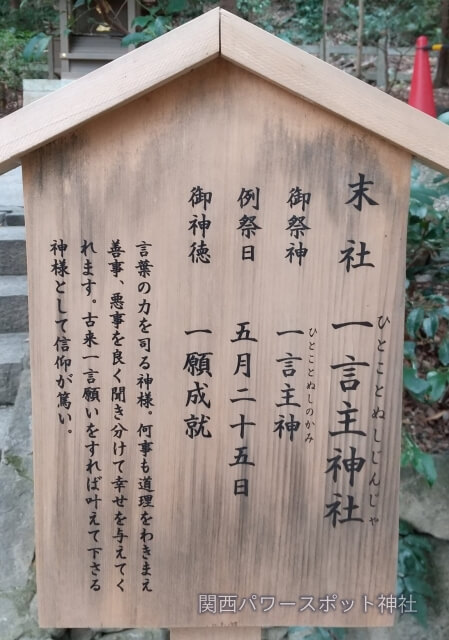 末社 一言主神社
ひとことぬしじんじゃ
御祭神 一言主神
ひとことぬしのかみ
例祭日 五月二十五日
御神徳 一願成就
言葉の力を司る神様。何事も道理をわきまえ
善事、悪事を良く聞き分けて幸せを与えてく
れます。古来一言願いをすれば叶えて下さる
神様として信仰が篤い。
関西パワースポット神社